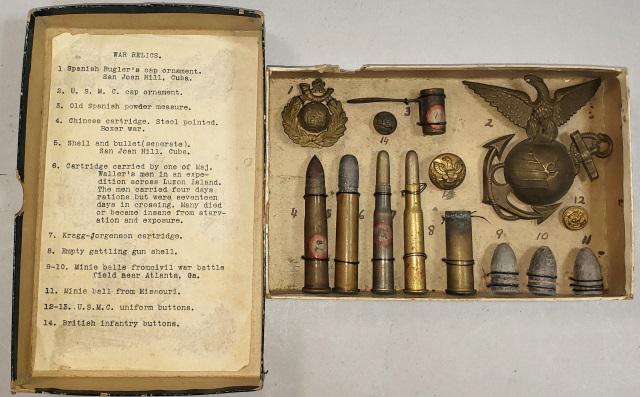 WAR RELICS.
1 Spanish Bugler's cap ornament.
San Joan Hill, Cuba.
2. U. S. M. C. cap ornament.
3. Old Spanish powder measure.
4. Chinese cartridge. Steel pointed.
Boxer war.
5. Shell and bullet(seperate).
San Joan Hill, Cuba.
6. Cartridge carried by one of Maj.
Waller's men in an expe-
dition across Luzon Island.
The men carried four days
rations but were seventeen
days in crossing. Many died
or became insane from starv-
ation and exposure.
7. Kragg-Jorgenson cartridge.
8. Empty gattling gun shell.
9-10. Minie balls fromcivil war battle
field near Atlanta, Ga.
11. Minie ball from Missouri.
12-13. U.S.M.C. uniform buttons.
14. British infantry buttons.
1
3
2
14
4
5
6
7
8
9
10
11
12